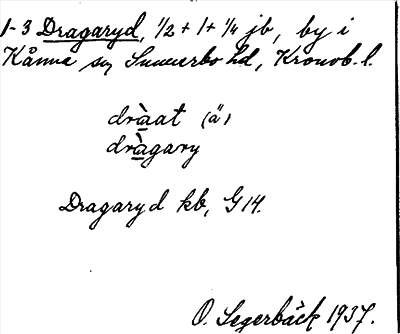 1-3 Dragaryd, 1/2 + 1 + 1/4 jb, by i
Kånna sn Sunnerbo hd, Kronob. l.
dràat (ä)
dràgary
Dragaryd kb, G 14.
O. Segerbäck 1937.